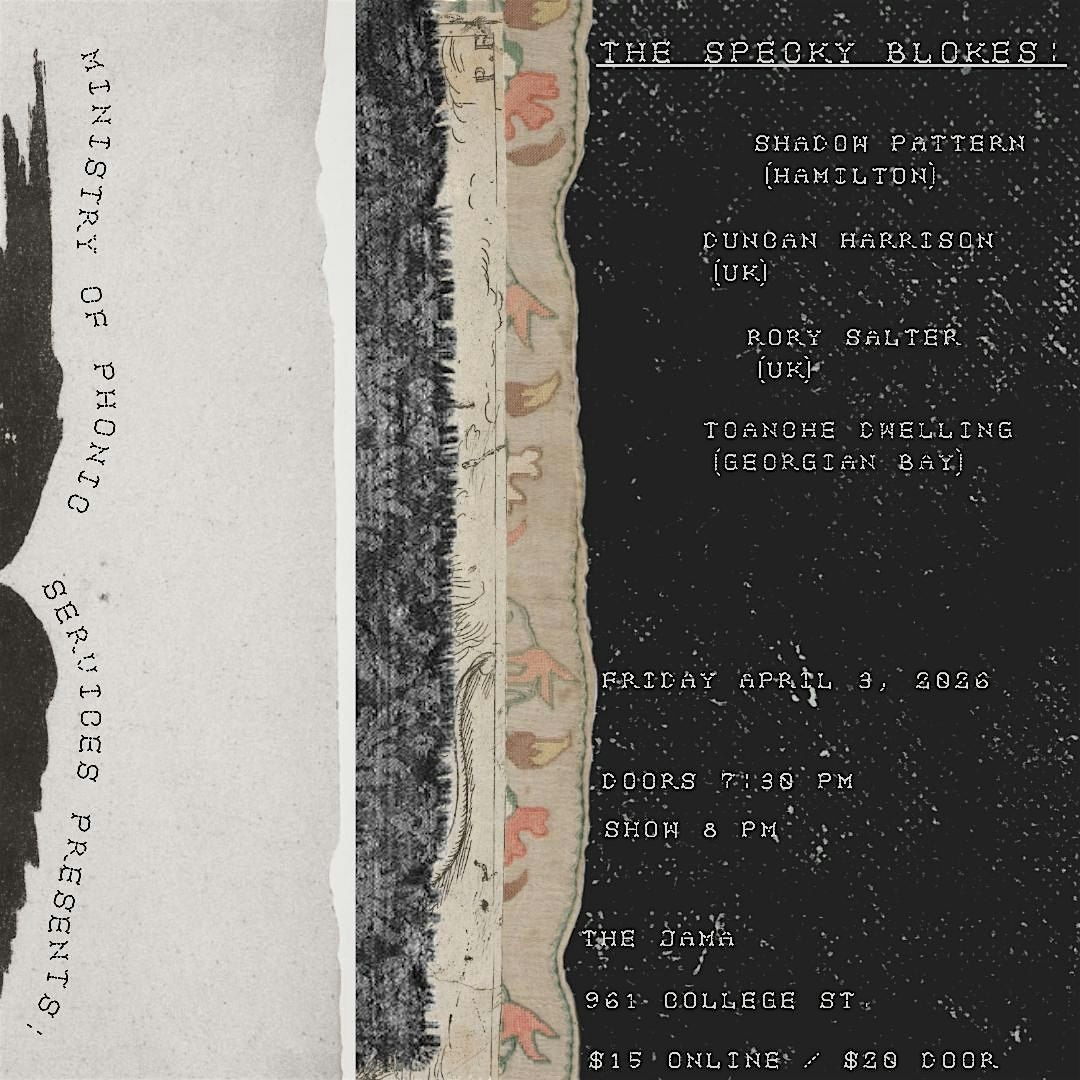 MINISTRY OF PHONIC
SERVICES PRESENTS:
THE SPECKY BLOKES:
SHADOW PATTERN
(HAMILTON)
DUNCAN HARRISON
(UK)
RORY SALTER
(UK)
TOANCHE DWELLING
(GEORGIAN BAY)
FRIDAY APRIL 3, 2026
DOORS 7:30 PM
SHOW 8 PM
THE JAMA
961 COLLEGE ST.
$15 ONLINE / $20 DOOR